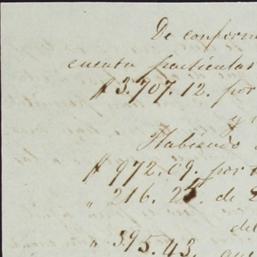 De conform
cuenta particular
$ 3.707.12. por
y
Habiendo
$ 972.09. por
" 216. 25. de
de
" 395.43.